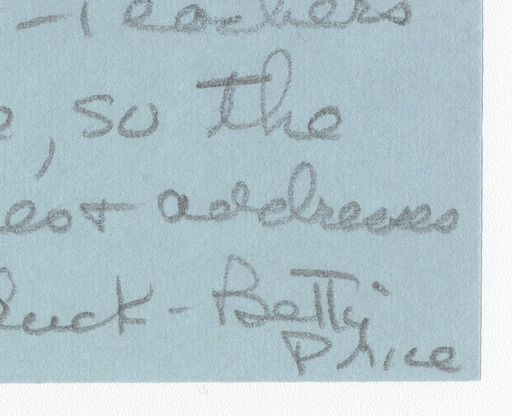 -Teachers
, so the
addresses
luck - Betty
Price